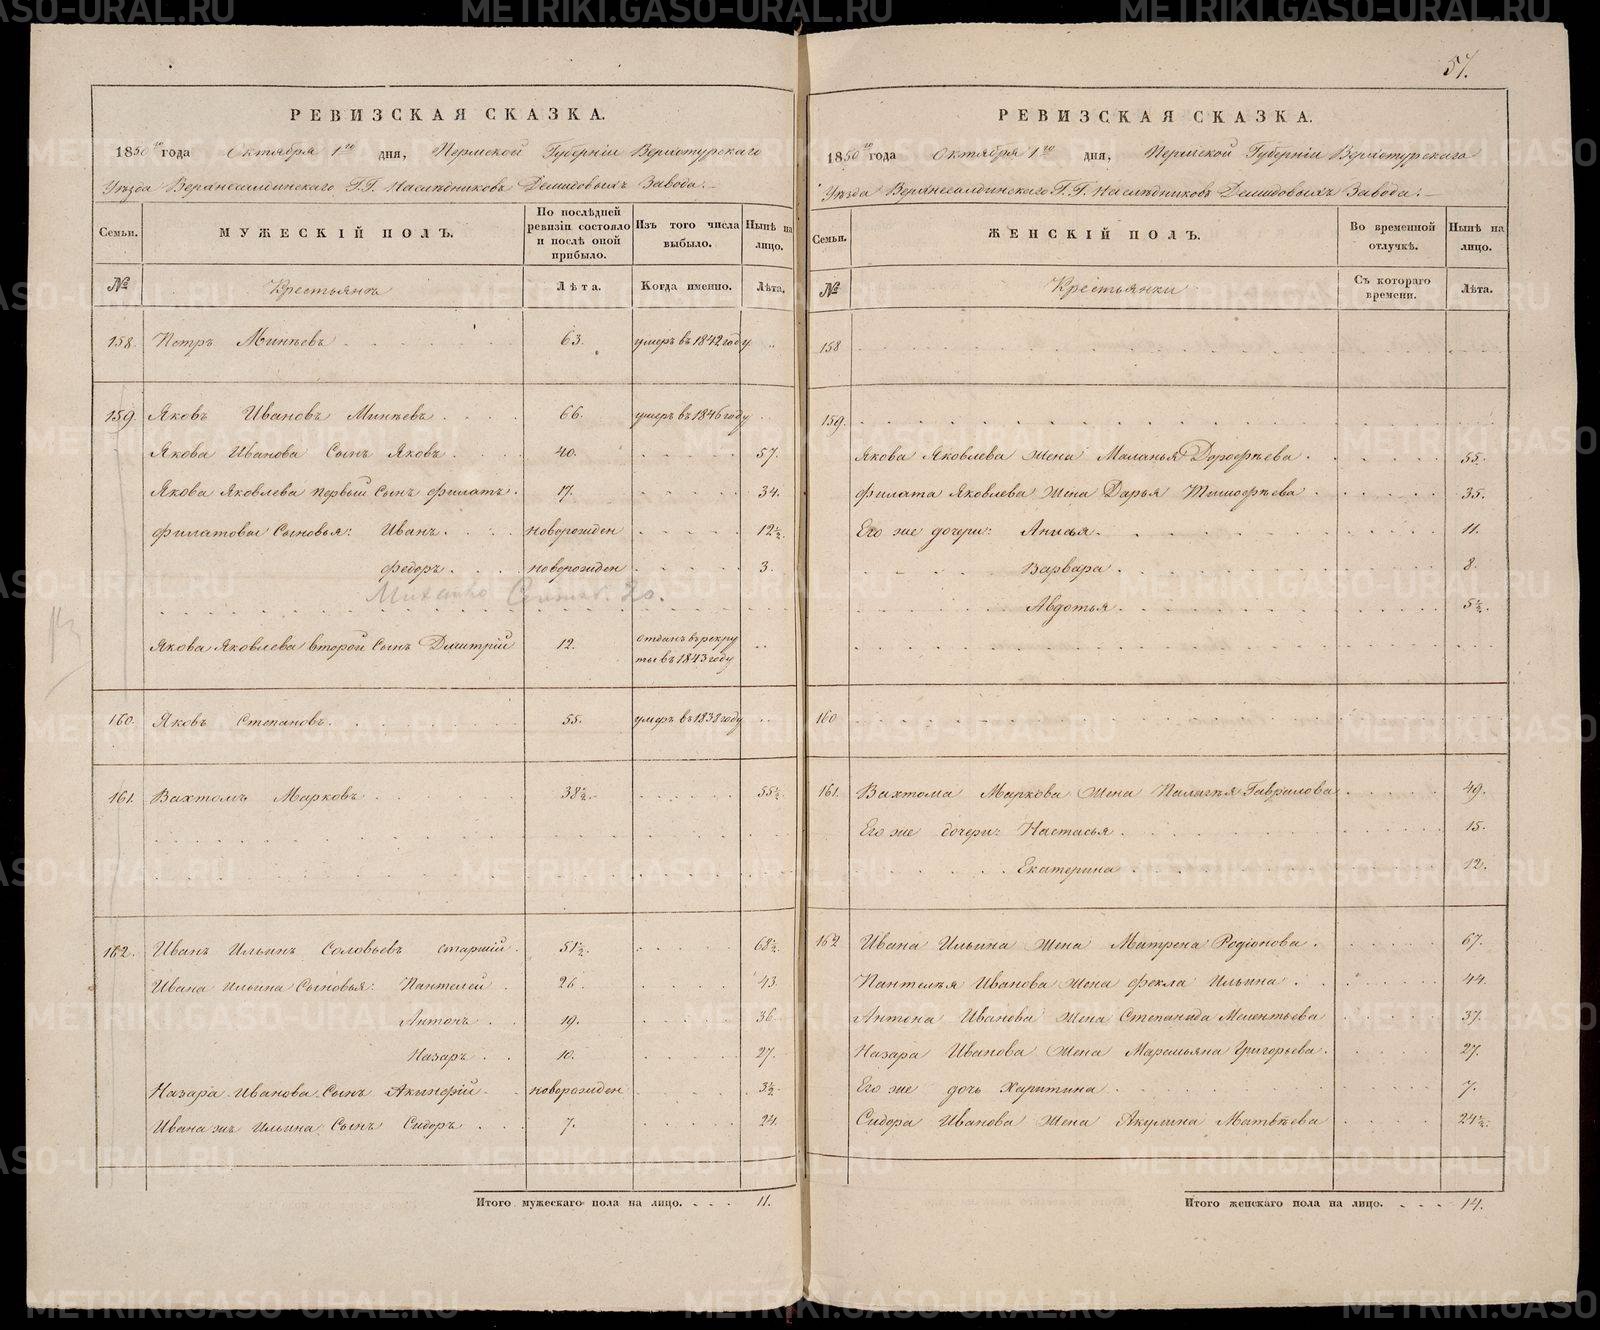 57.
РЕВИЗСКАЯ СКАЗКА.
1850го года Октября 1го дня, Пермской Губернiи Верхотурскаго
Уѣзда Верхнесалдинскаго Г.Г. Наслѣдниковъ Демидовыхъ Завода:
Семьи. МУЖЕСКІЙ ПОЛЪ. По послѣдней ревизіи состояло и послѣ оной прибыло. Изъ того числа выбыло. Нынѣ на лицо.
№ Крестьянъ Лѣта. Когда именно. Лѣта.
158. Петръ Минѣевъ 63. умеръ въ 1842 году
159. Яковъ Ивановъ Минѣевъ 66. умеръ въ 1846 году
Якова Иванова Сынъ Яковъ 40. 57.
Якова Яковлева первый Сынъ Филатъ 17. 34.
Филатовы Сыновья: Иванъ новорожден 12½.
Федоръ новорожден 3.
Якова Яковлева второй Сынъ Дмитрій 12. отданъ въ рекру
ты въ 1843 году
160. Яковъ Степановъ 55. умеръ въ 1838 году
161. Вахтомъ Марковъ 38½. 55½
162. Иванъ Ильинъ Соловьевъ старшій 51½. 68½.
Ивана Ильина Сыновья: Пантелей 26. 43.
Антонъ 19. 36.
Назаръ 10. 27.
Назара Иванова Сынъ Акинфій новорожден 3½.
Ивана жъ Ильина Сынъ Сидоръ 7. 24.
Итого мужескаго пола на лицо. 11.
РЕВИЗСКАЯ СКАЗКА.
1850го года Октября 1го дня, Пермской Губернiи Верхотурскаго
Уѣзда Верхнесалдинскаго Г.Г. Наслѣдниковъ Демидовыхъ Завода:
Семьи. ЖЕНСКІЙ ПОЛЪ. Во временной отлучкѣ. Нынѣ на лицо.
№ Крестьянки Съ котораго времени. Лѣта.
158
159.
Якова Яковлева жена Маланья Дорофѣева 55.
Филата Яковлева жена Дарья Тимофѣева 35.
Его же дочери: Анисья 11.
Варвара 8.
Авдотья 5½.
160
161. Вахтома Маркова жена Палагѣя Гаврилова 49.
Его же дочери: Настасья 15.
Екатерина 12.
162 Ивана Ильина жена Матрена Родіонова 67.
Пантелѣя Иванова жена Фекла Ильина 44.
Антона Иванова жена Степанида Мелентьева 37.
Назара Иванова жена Маремьяна Григорьева 27.
Его же дочь Харитина 7.
Сидора Иванова жена Акулина Матвѣева 24½.
Итого женскаго пола на лицо. 14.
METRIKI.GASO-URAL.RU